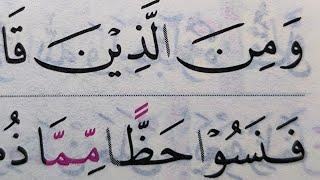 وَمِنَ الَّذِيْنَ قَا
فَنَسُوْا حَظًّا مِّمَّا ذُ